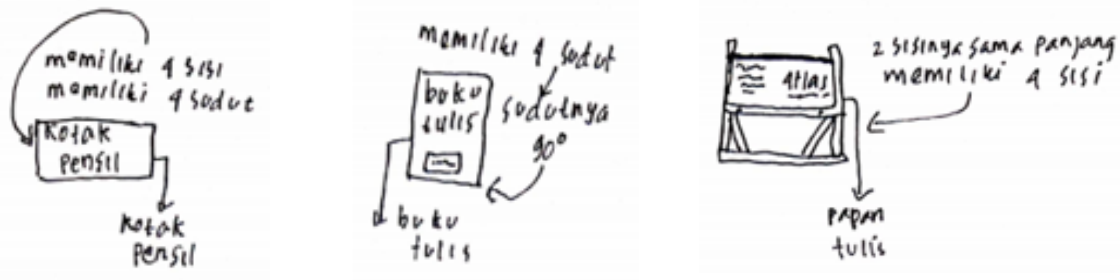 memiliki 4 sisi
memiliki 4 sudut
Kotak
pensil
Kotak
pensil
memiliki 4 sudut
sudutnya
90°
buku
tulis
buku
tulis
2 sisinya sama panjang
memiliki 4 sisi
atlas
papan
tulis